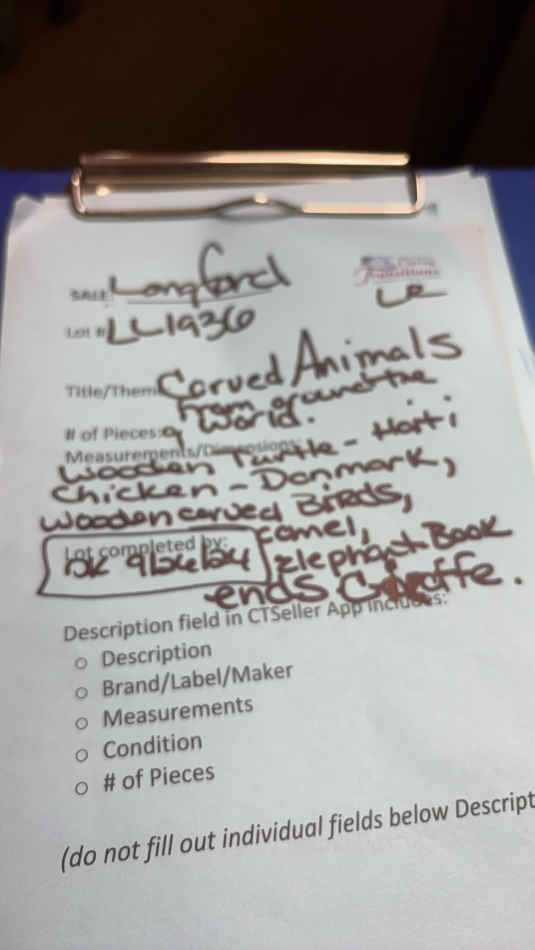 SALE: Longford
LR
Lot #: LL1936
Title/Theme Carved Animals
from around the
# of Pieces: 9 World.
Measurements/Dimensions:
Wooden Turtle - Haiti
Chicken - Danmark,
wooden carved BIRDS,
Lot completed by: camel,
Elephant Book
ends Giraffe.
Description field in CTSeller App includes:
Description
Brand/Label/Maker
Measurements
Condition
# of Pieces
(do not fill out individual fields below Descript